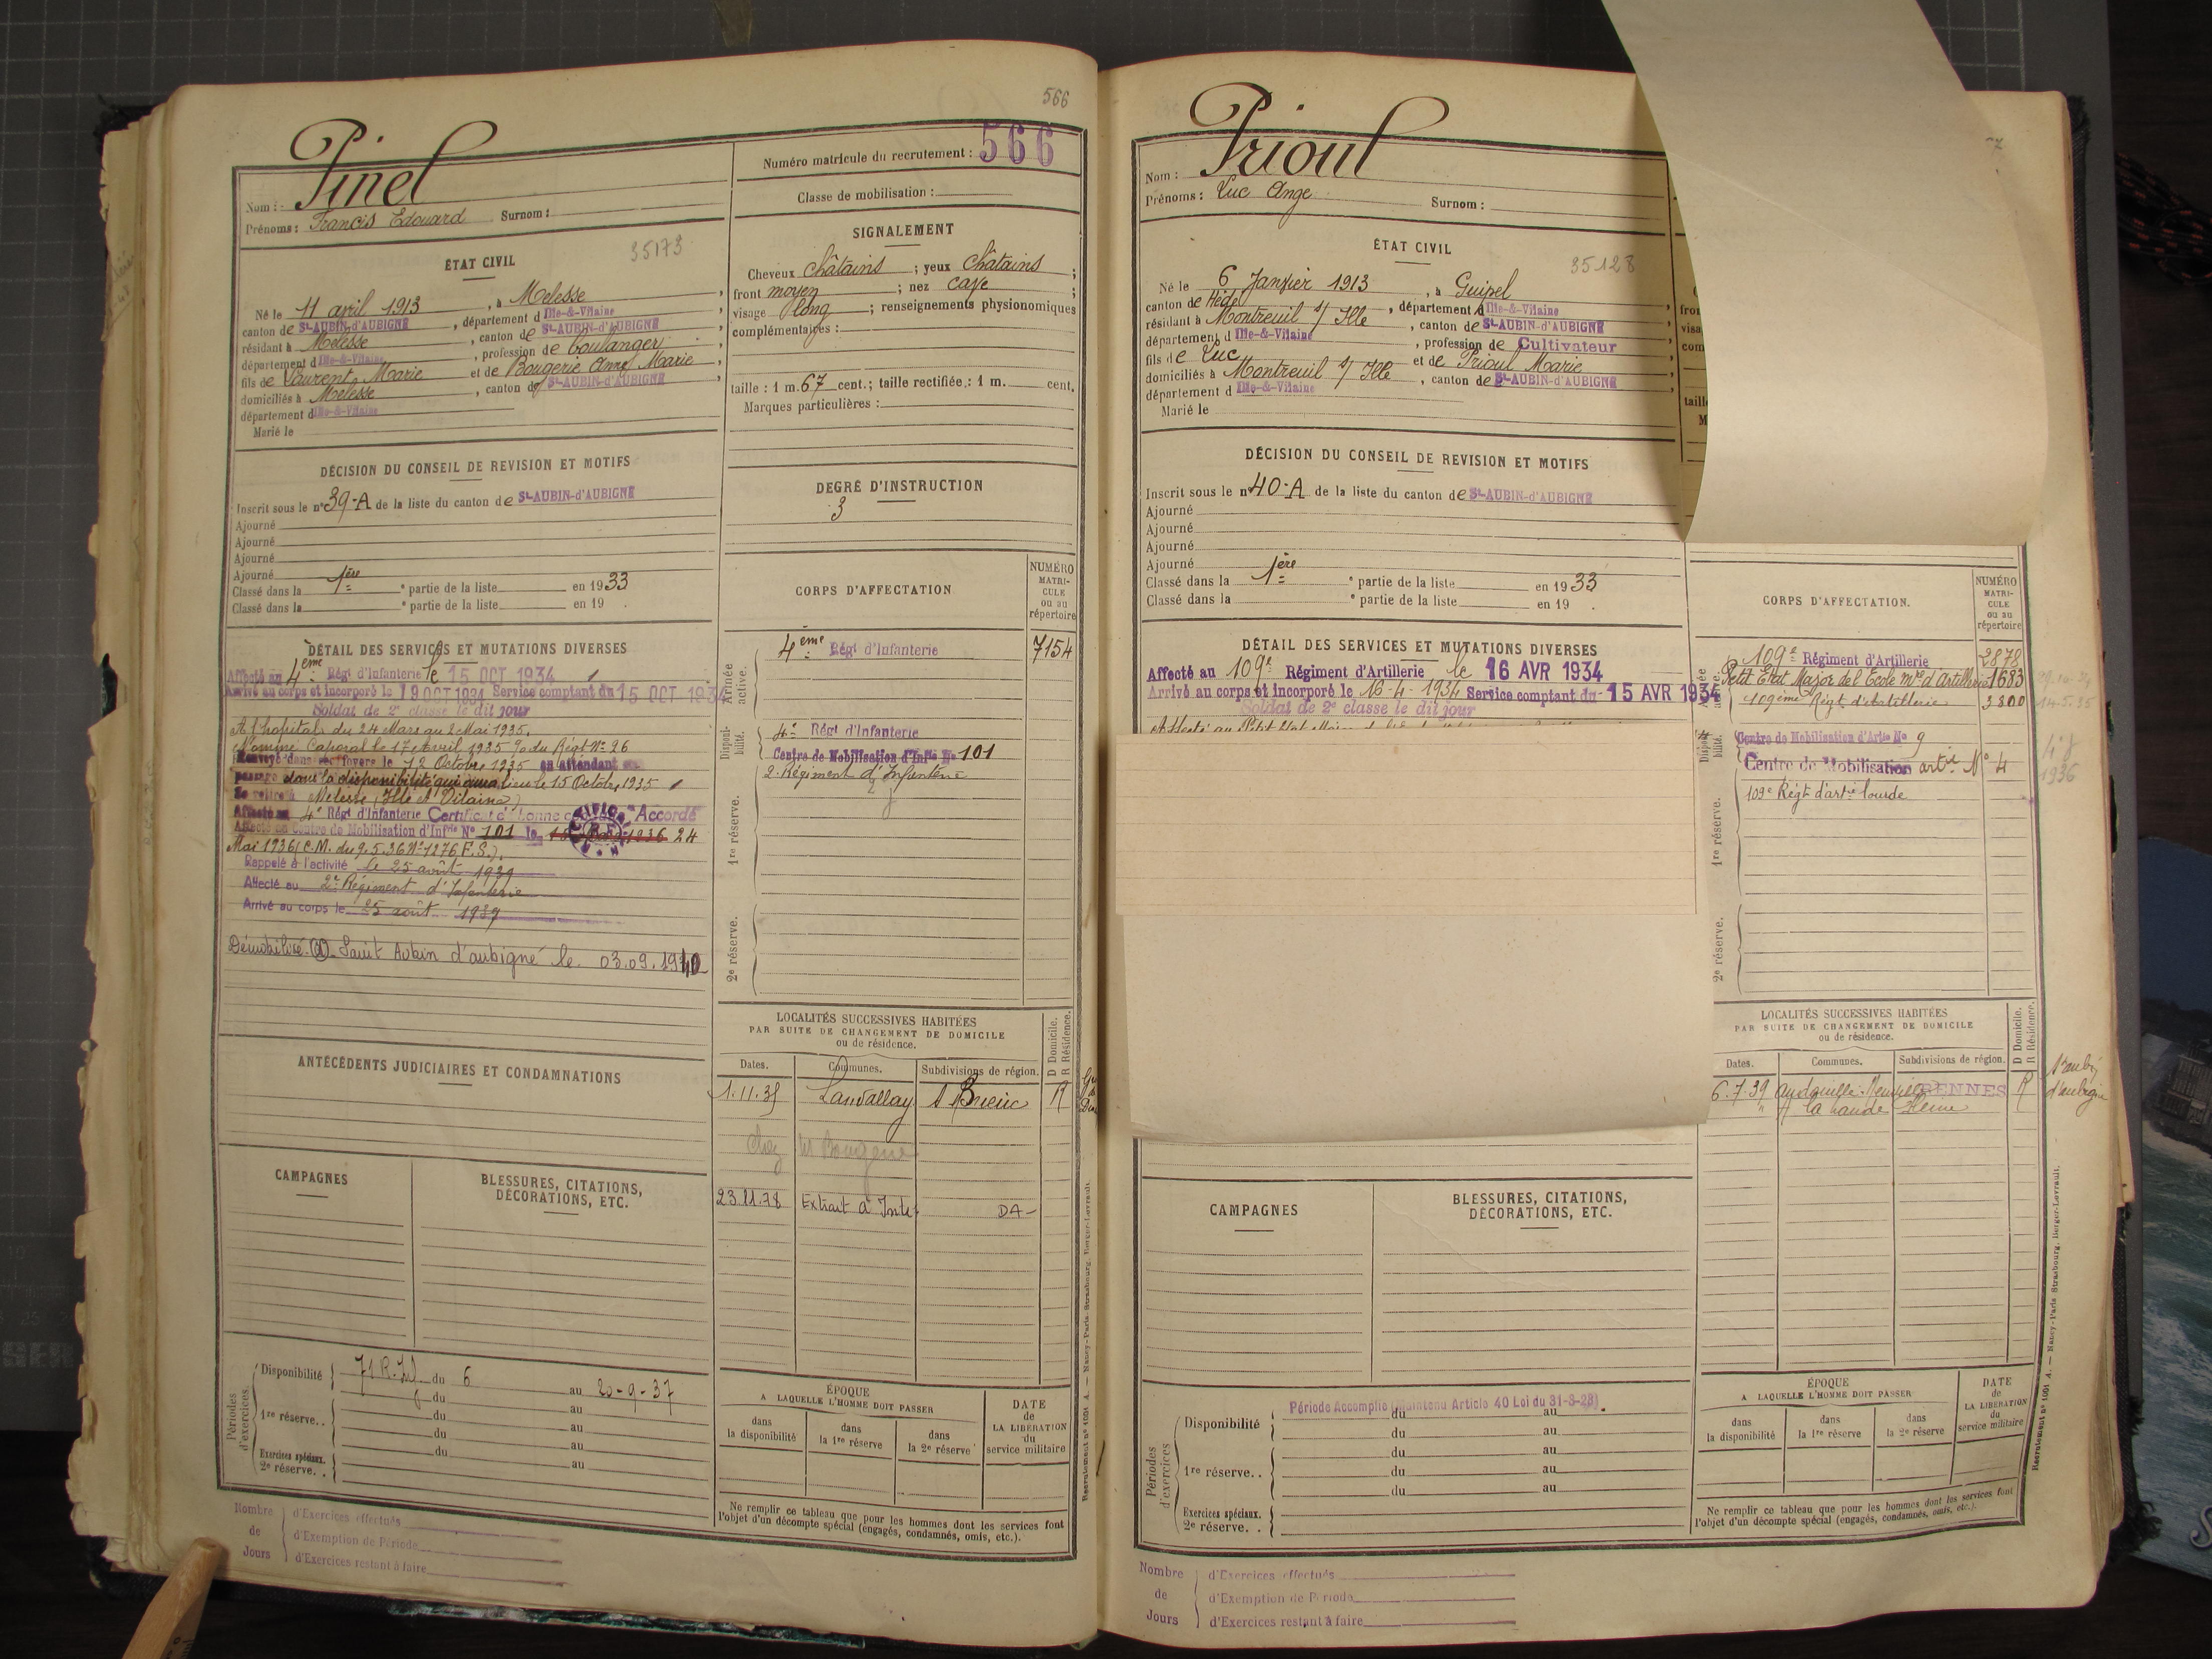 566
Pinel
Nom :
Prénoms : Francis Edouard Surnom :
Numéro matricule du recrutement : 566
Classe de mobilisation :
35173
ÉTAT CIVIL
Né le 11 avril 1913, à Melesse,
canton de St-AUBIN-d'AUBIGNÉ, département d Ille-&-Vilaine
résidant à Melesse, canton de St-AUBIN-d'AUBIGNÉ,
département d Ille-&-Vilaine, profession de boulanger
fils de Laurent Marie et de Bougerie Anne Marie,
domiciliés à Melesse, canton de St-AUBIN-d'AUBIGNÉ,
département d Ille-&-Vilaine
Marié le
SIGNALEMENT
Cheveux châtains ; yeux châtains ;
front moyen ; nez cave ;
visage long ; renseignements physionomiques
complémentaires :
taille : 1 m. 67 cent.; taille rectifiée : 1 m. cent.
Marques particulières :
DÉCISION DU CONSEIL DE REVISION ET MOTIFS
Inscrit sous le n° 39-A de la liste du canton de St-AUBIN-d'AUBIGNÉ
Ajourné
Ajourné
Ajourné
Ajourné
Classé dans la 1ère partie de la liste en 1933
Classé dans la e partie de la liste en 19 .
DEGRÉ D'INSTRUCTION
3
DÉTAIL DES SERVICES ET MUTATIONS DIVERSES
Affecté au 4ème Régt d'Infanterie le 15 OCT 1934
Arrivé au corps et incorporé le 19 OCT 1934 Service comptant du 15 OCT 1934
Soldat de 2e classe le dit jour
A l'hopital du 24 Mars au 2 Mai 1935.
Nommé Caporal le 17 Avril 1935 O. du Régt N° 26
Renvoyé dans ses foyers le 12 Octobre 1935 en attendant son
passage dans la disponibilité qui aura lieu le 15 Octobre 1935
Se retire à Melesse (Ille et Vilaine)
Affecté au 4e Régt d'Infanterie Certificat de bonne Accordé
Affecté au Centre de Mobilisation d'Infrie N° 101 le 1936 24
Mai 1936 (C.M. du 9.5.36 N° 1276 F.S.).
Rappelé à l'activité le 25 août 1939
Affecté au 2e Régiment d'Infanterie
Arrivé au corps le 25 août 1939
Démobilisé @ Saint Aubin d'aubigné le 03.09.1940
CORPS D'AFFECTATION
NUMÉRO MATRI-CULE ou au répertoire
Armée active.
4ème Régt d'Infanterie 7154
Disponi-bilité.
4e Régt d'Infanterie
Centre de Mobilisation d'Infie N° 101
2e Régiment d'Infanterie
1re réserve.
2e réserve.
ANTÉCÉDENTS JUDICIAIRES ET CONDAMNATIONS
LOCALITÉS SUCCESSIVES HABITÉES
PAR SUITE DE CHANGEMENT DE DOMICILE
ou de résidence.
D Domicile.
R Résidence.
Dates. Communes. Subdivisions de région.
1.11.35 Lanvallay St Brieuc R
chez Bougerie
23.11.78 Extrait à Inté DA-
CAMPAGNES
BLESSURES, CITATIONS,
DÉCORATIONS, ETC.
Périodes d'exercices.
Disponibilité 71 R.I. du 6 au 20-9-37
du au
1re réserve. . du au
du au
Exercices spéciaux. du au
2e réserve. .
ÉPOQUE
A LAQUELLE L'HOMME DOIT PASSER
dans la disponibilité
dans la 1re réserve
dans la 2e réserve
DATE de LA LIBÉRATION du service militaire
Ne remplir ce tableau que pour les hommes dont les services font
l'objet d'un décompte spécial (engagés, condamnés, omis, etc.).
Recrutement n° 1001 A. — Nancy-Paris-Strasbourg, Berger-Levrault.
Nombre de Jours
d'Exercices effectués
d'Exemption de Période
d'Exercices restant à faire
Nom : Prioul
Prénoms : Luc Ange Surnom :
ÉTAT CIVIL
35128
Né le 6 Janvier 1913, à Guipel
canton de Hédé, département d Ille-&-Vilaine,
résidant à Montreuil s/ Ille, canton de St-AUBIN-d'AUBIGNÉ
département d Ille-&-Vilaine, profession de Cultivateur
fils de Luc et de Prioul Marie
domiciliés à Montreuil s/ Ille, canton de St-AUBIN-d'AUBIGNÉ,
département d Ille-&-Vilaine
Marié le
fron
visa
com
taille
M
DÉCISION DU CONSEIL DE REVISION ET MOTIFS
Inscrit sous le n° 40-A de la liste du canton de St-AUBIN-d'AUBIGNÉ
Ajourné
Ajourné
Ajourné
Ajourné
Classé dans la 1ère partie de la liste en 1933
Classé dans la e partie de la liste en 19 .
DÉTAIL DES SERVICES ET MUTATIONS DIVERSES
Affecté au 109e Régiment d'Artillerie le 16 AVR 1934
Arrivé au corps et incorporé le 16-4-1934 Service comptant du 15 AVR 1934
Soldat de 2e classe le dit jour
CORPS D'AFFECTATION.
NUMÉRO MATRI-CULE ou au répertoire
109e Régiment d'Artillerie 2878
Petit Etat Major de l'Ecole mre d'Artillerie 1683
109ème Régt d'Artillerie 3800
Centre de Mobilisation d'Artie N° 9
Centre de Mobilisation artie N° 4
1936
109e Régt d'artie lourde
1re réserve.
2e réserve.
LOCALITÉS SUCCESSIVES HABITÉES
PAR SUITE DE CHANGEMENT DE DOMICILE
ou de résidence.
D Domicile.
R Résidence.
Dates. Communes. Subdivisions de région.
6.7.39 Andouillé-Neuville RENNES R St aubin d'aubigné
CAMPAGNES
BLESSURES, CITATIONS,
DÉCORATIONS, ETC.
Périodes d'exercices
Période Accomplie (Maintenu Article 40 Loi du 31-3-28).
Disponibilité du au
du au
du au
1re réserve. . du au
du au
Exercices spéciaux.
2e réserve. .
ÉPOQUE
A LAQUELLE L'HOMME DOIT PASSER
dans la disponibilité
dans la 1re réserve
dans la 2e réserve
DATE de LA LIBÉRATION du service militaire
Ne remplir ce tableau que pour les hommes dont les services font
l'objet d'un décompte spécial (engagés, condamnés, omis, etc.).
Recrutement n° 1001 A. — Nancy-Paris-Strasbourg, Berger-Levrault.
Nombre de Jours
d'Exercices effectués
d'Exemption de Période
d'Exercices restant à faire